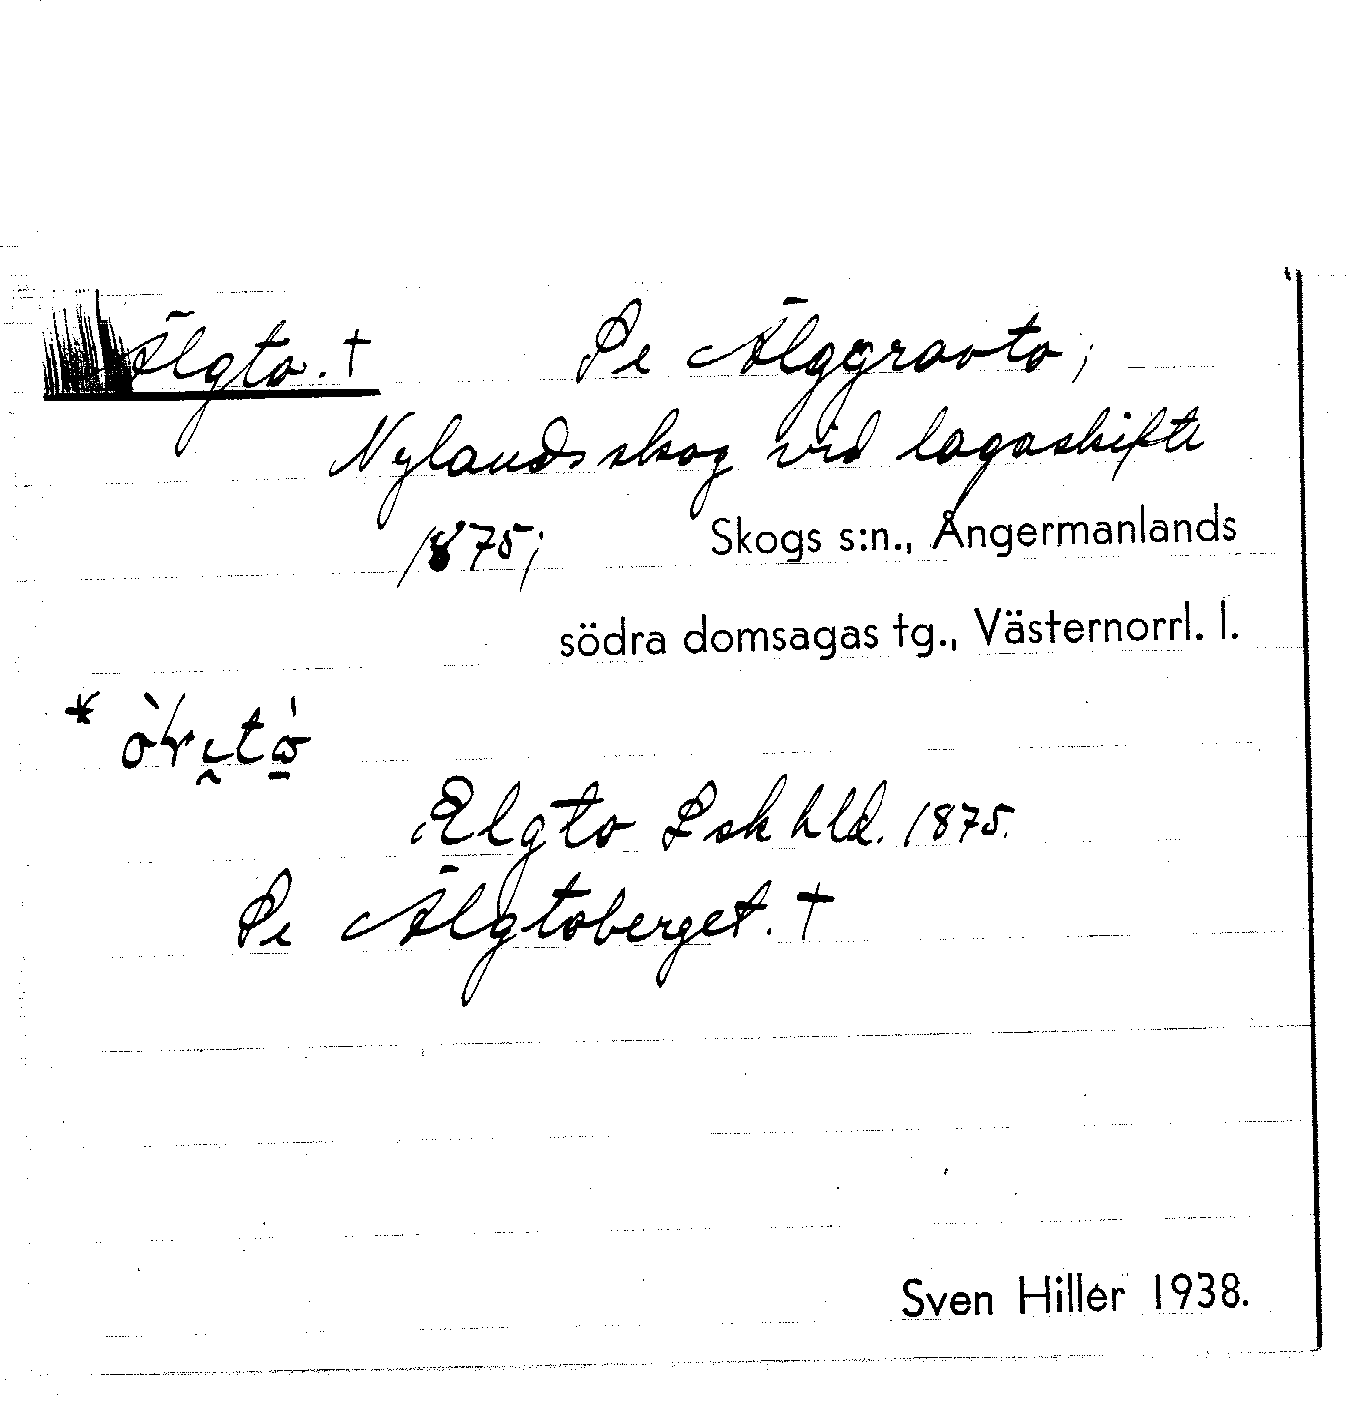 Älgto. † Se Älggravto;
Nylands skog vid lagaskifte
1875; Skogs s:n., Ångermanlands
södra domsagas tg., Västernorrl. l.
Elgto Lskhld. 1875.
Se Älgtoberget. †
Sven Hillér 1938.